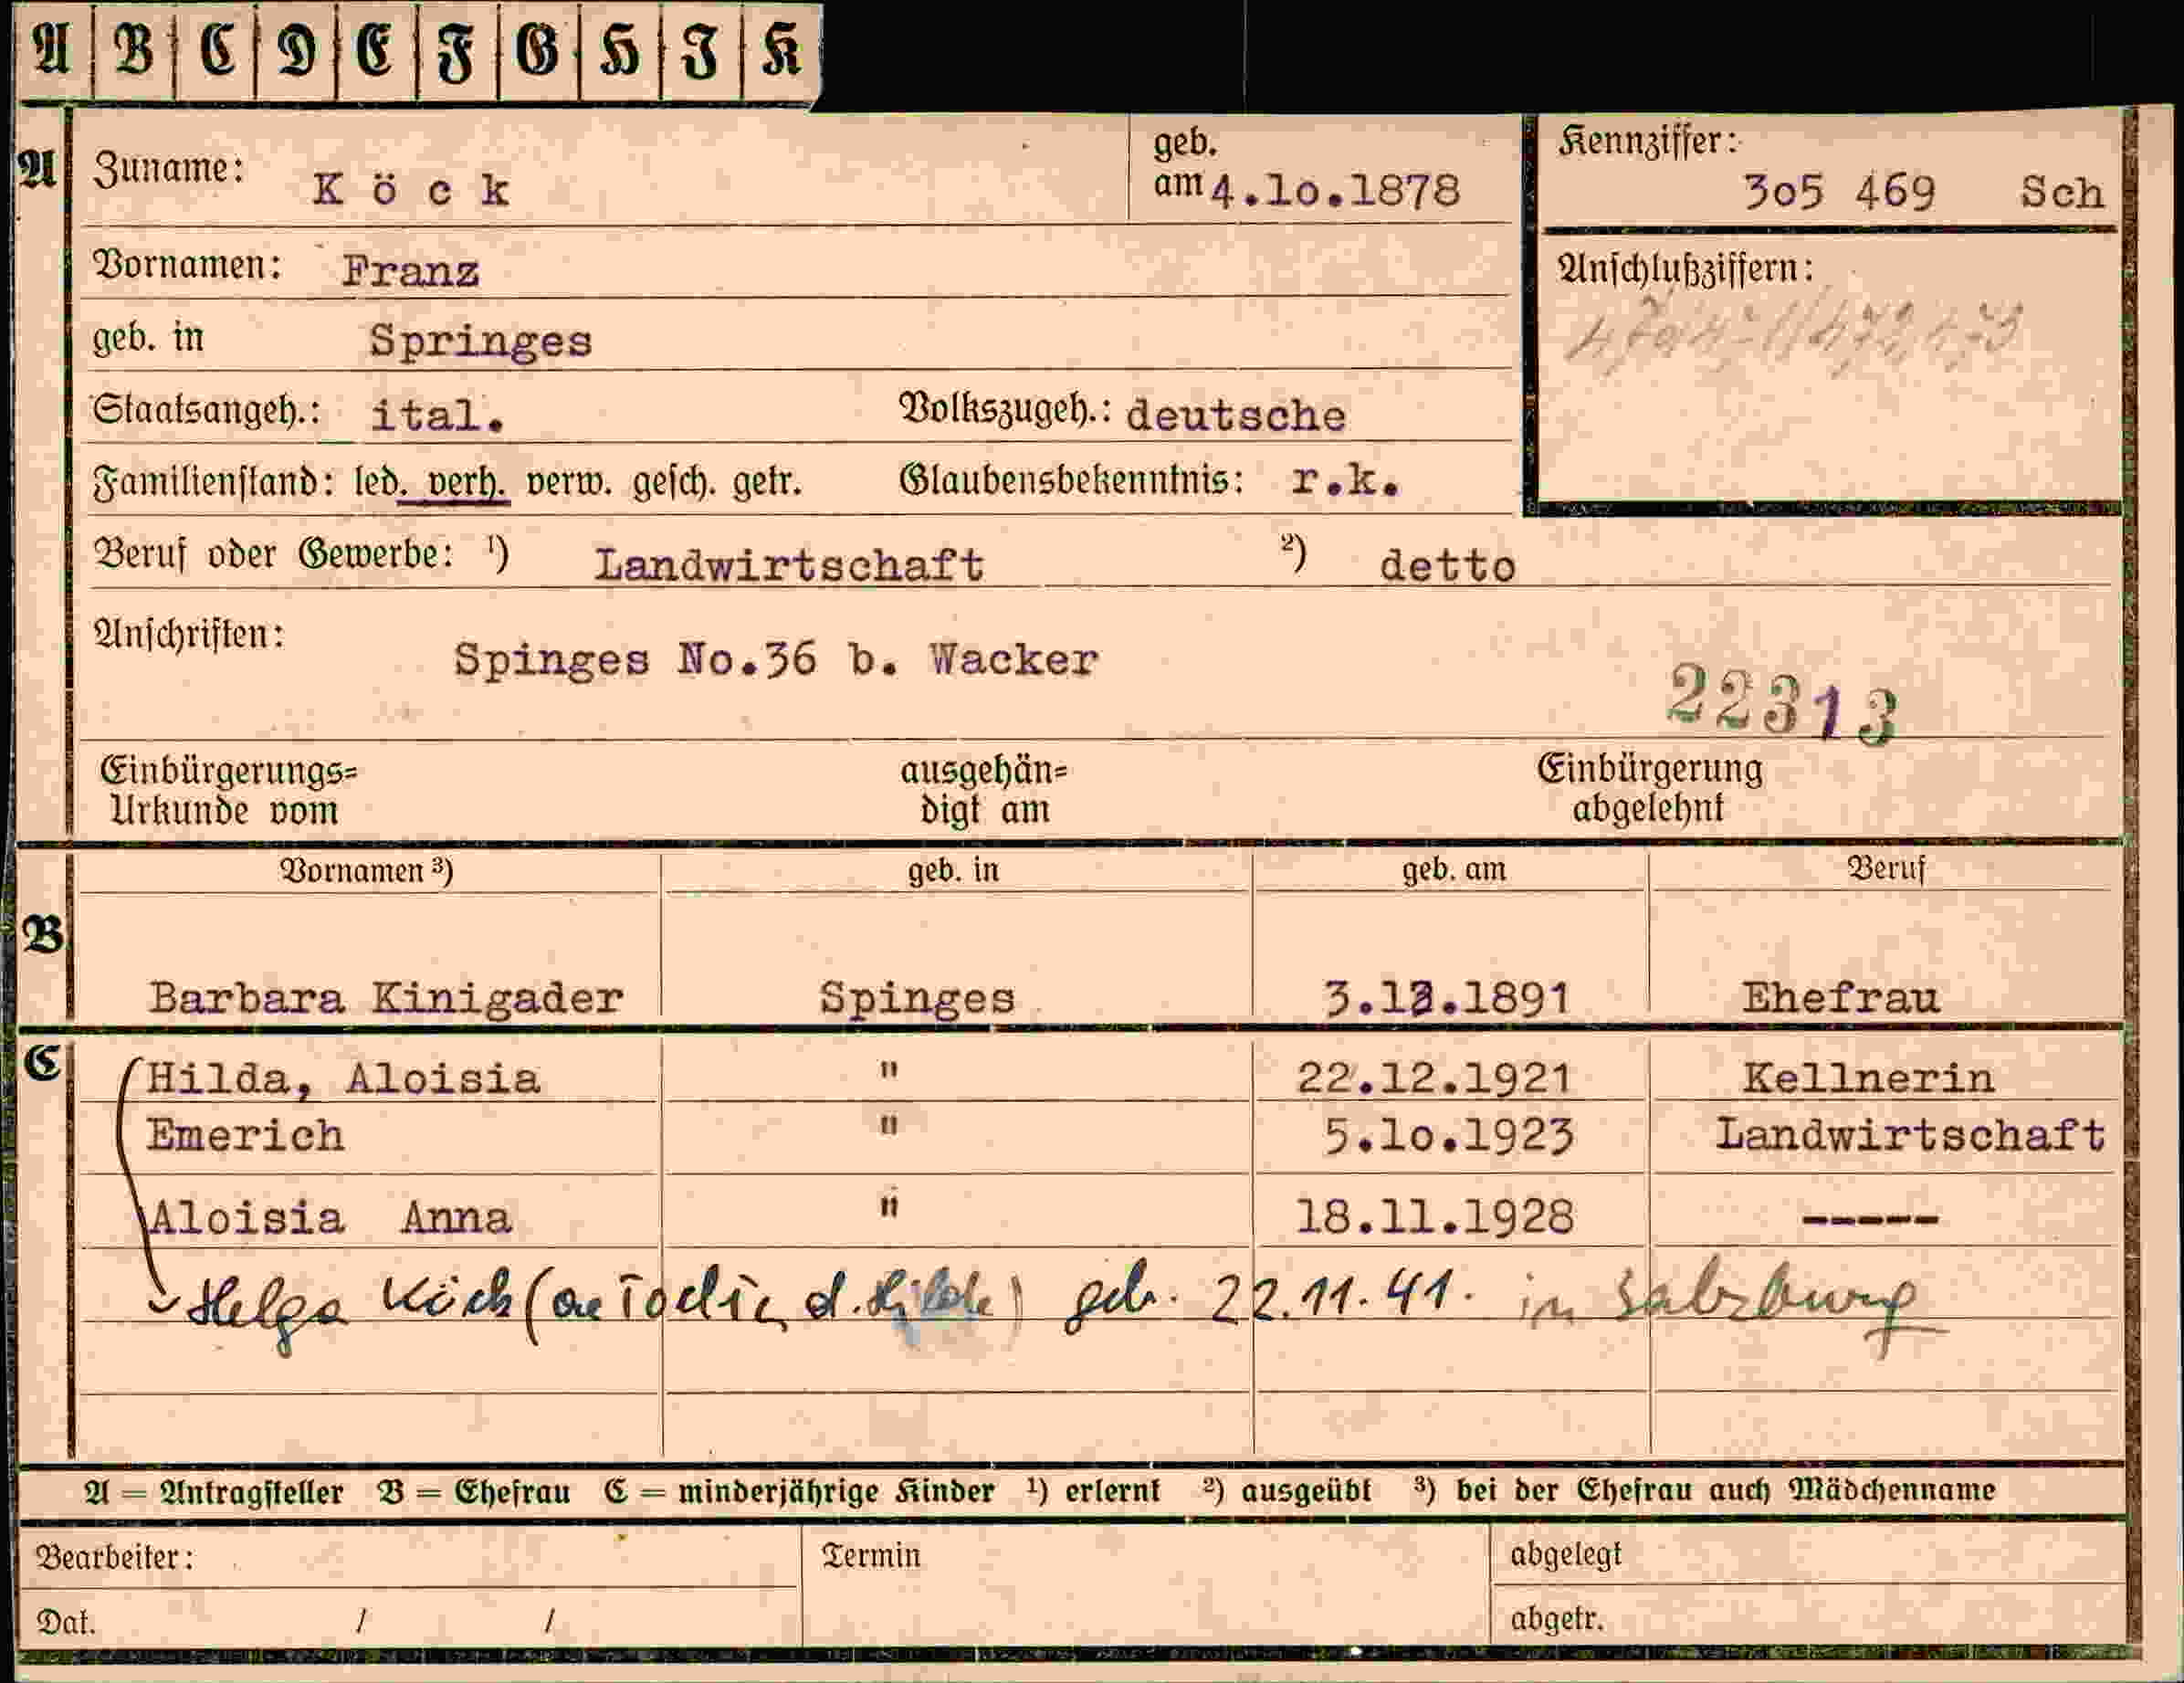 A B C D E F G H J K
A Zuname: Köck geb. am 4.10.1878 Kennziffer: 305 469 Sch
Vornamen: Franz Anschlußziffern:
geb. in Springes
Staatsangeh.: ital. Volkszugeh.: deutsche
Familienstand: led. verh. verw. gesch. getr. Glaubensbekenntnis: r.k.
Beruf oder Gewerbe: ¹) Landwirtschaft ²) detto
Anschriften: Spinges No.36 b. Wacker
22313
Einbürgerungs= ausgehän= Einbürgerung
Urkunde vom digt am abgelehnt
Vornamen ³) geb. in geb. am Beruf
B
Barbara Kinigader Spinges 3.12.1891 Ehefrau
C Hilda, Aloisia " 22.12.1921 Kellnerin
Emerich " 5.10.1923 Landwirtschaft
Aloisia Anna " 18.11.1928 -----
Helga Köck ( d. Hilde) geb. 22.11.41. in Salzburg
A = Antragsteller B = Ehefrau C = minderjährige Kinder ¹) erlernt ²) ausgeübt ³) bei der Ehefrau auch Mädchenname
Bearbeiter: Termin abgelegt
Dat. / / abgetr.